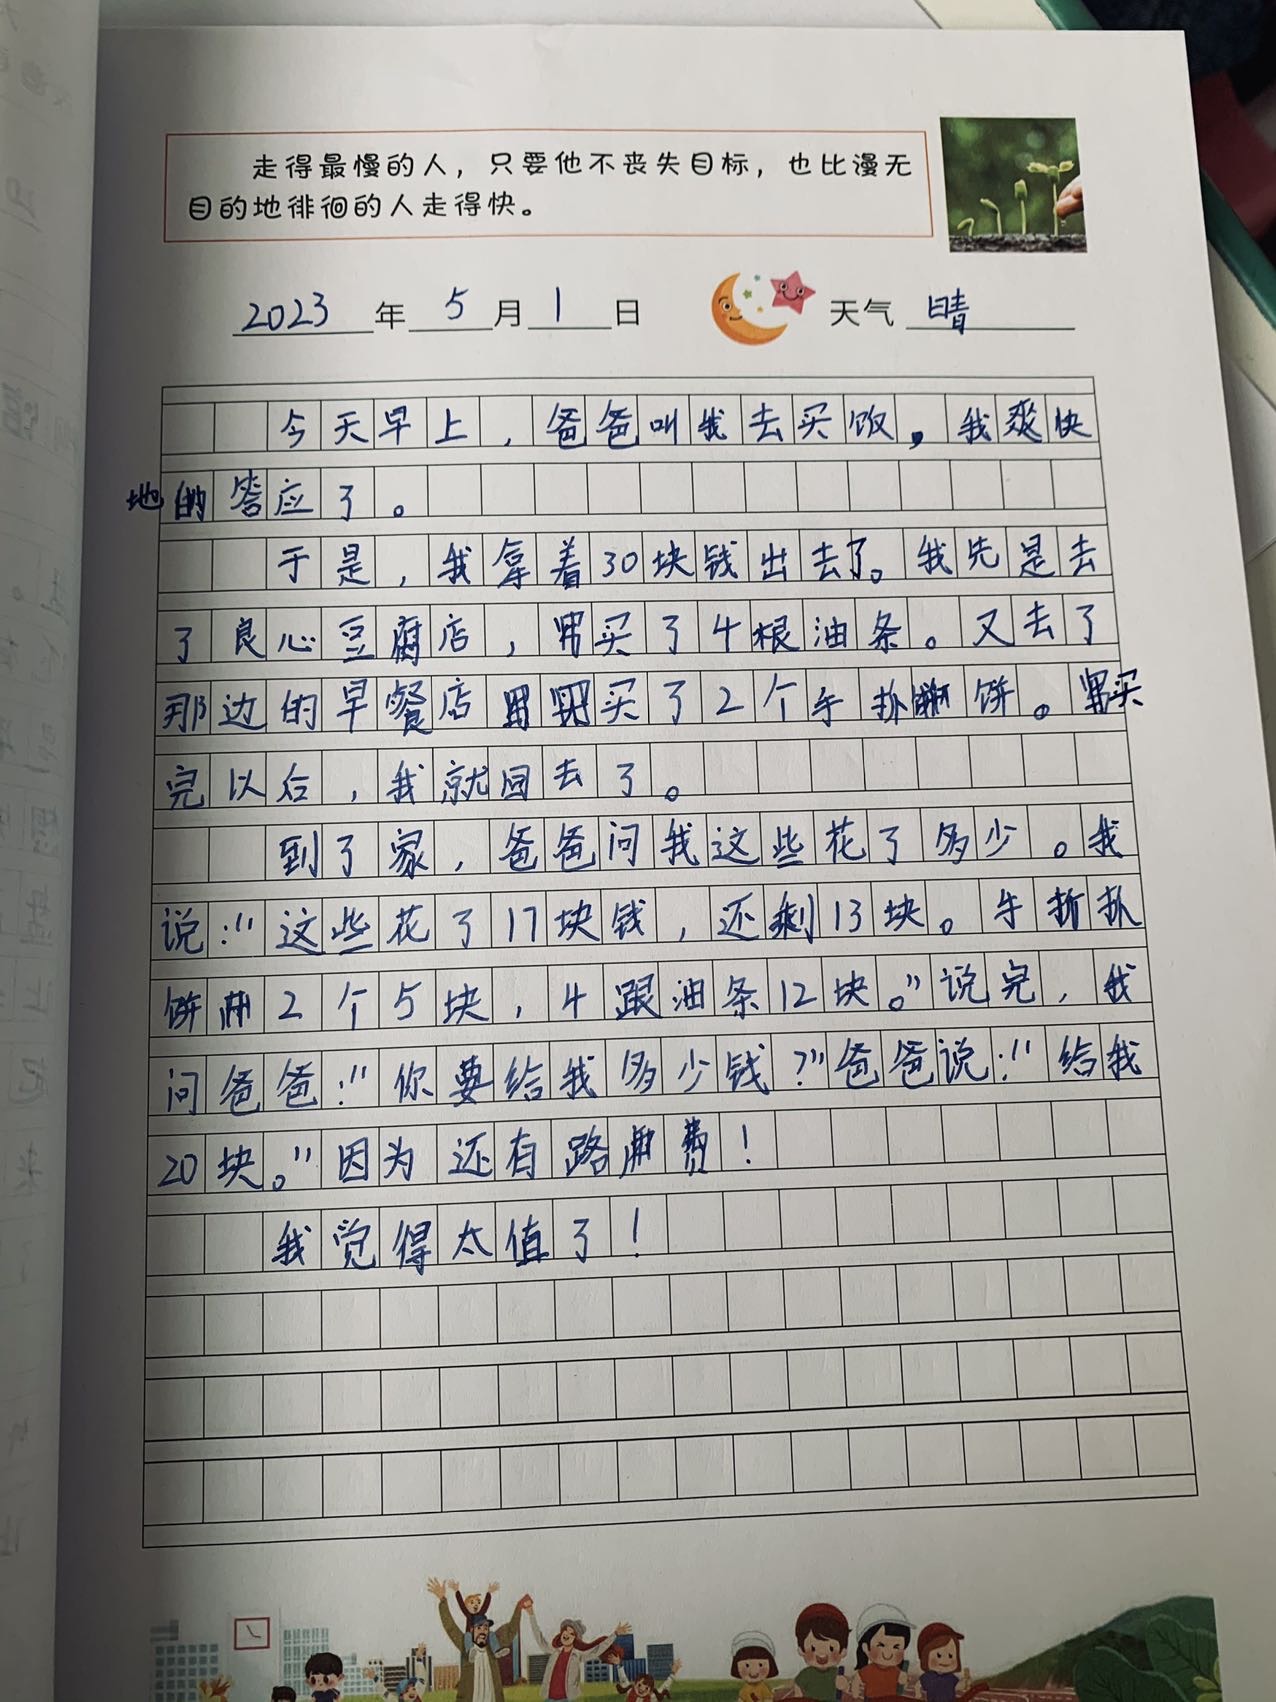 走得最慢的人，只要他不丧失目标，也比漫无
目的地徘徊的人走得快。
2023年5月1日 天气 晴
今天早上，爸爸叫我去买饭，我爽快
地答应了。
于是，我拿着30块钱出去了。我先是去
了良心豆腐店，买了4根油条。又去了
那边的早餐店买了2个手扒饼。买
完以后，我就回去了。
到了家，爸爸问我这些花了多少。我
说："这些花了17块钱，还剩13块。手扒
饼2个5块，4跟油条12块。"说完，我
问爸爸："你要给我多少钱？"爸爸说："给我
20块。"因为还有路费！
我觉得太值了！